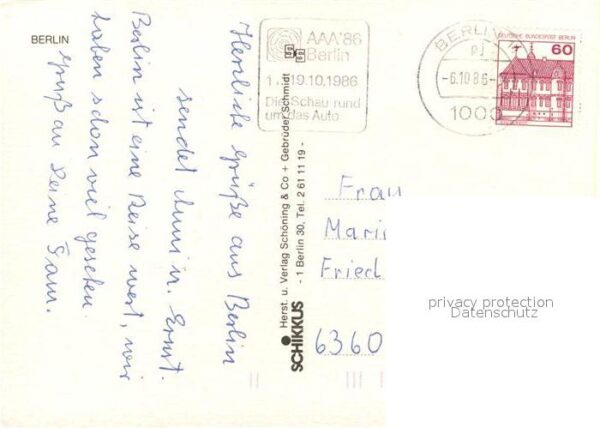 BERLIN
Herzliche Grüße aus Berlin
sendet Anni u. Ernst.
Berlin ist eine Reise wert, wir
haben schon viel gesehen.
Gruß an Deine Fam.
AAA'86
Berlin
19.10.1986
Die Schau rund
um das Auto
BERLIN
-6.10.86-
1000
DEUTSCHE BUNDESPOST BERLIN
60
SCHIKKUS
Herst. u. Verlag Schöning & Co + Gebrüder Schmidt
- 1 Berlin 30, Tel. 2 61 11 19 -
Frau
Mari
Fried
6360
privacy protection
Datenschutz